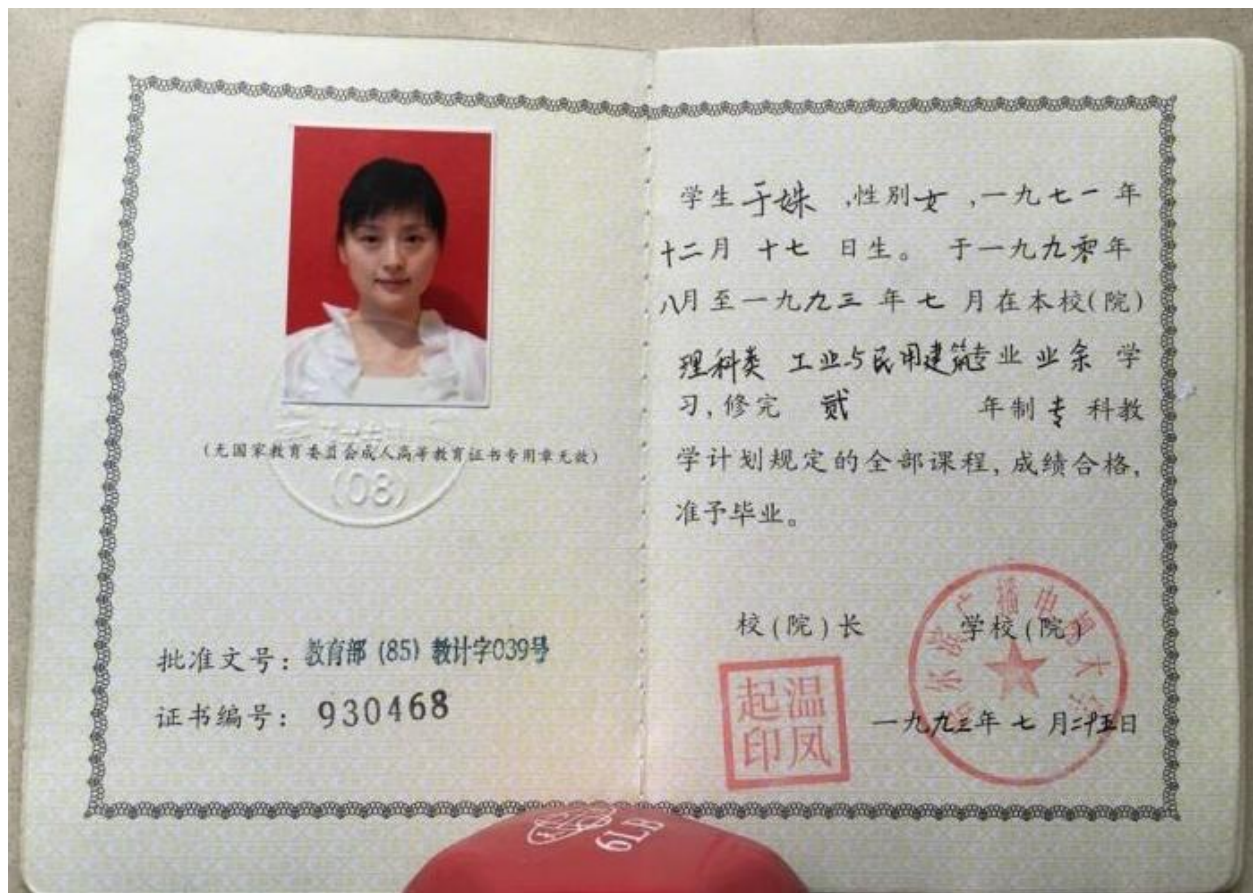 (无国家教育委员会成人高等教育证书专用章无效)
(08)
批准文号：教育部 (85) 教计字039号
证书编号：930468
学生 于姝 ,性别 女 ,一九七一年
十二月 十七 日生。 于一九九零年
八月至一九九三 年 七 月在本校(院)
理科类 工业与民用建筑专业 业余 学
习,修完 贰 年制 专 科教
学计划规定的全部课程,成绩合格,
准予毕业。
校(院)长 学校(院)
哈尔滨广播电视大学
温凤起印
一九九三年 七 月二十五日
6LB